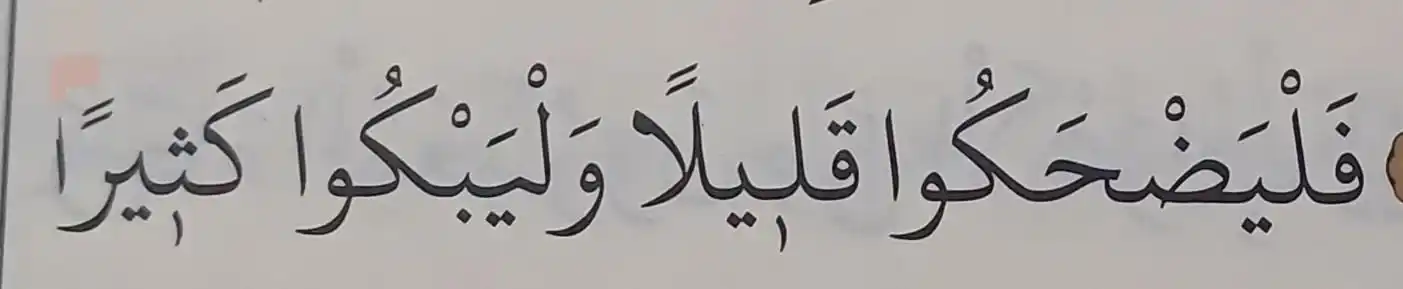 فَلْيَضْحَكُوا قَلٖيلًا وَلْيَبْكُوا كَثٖيرًا